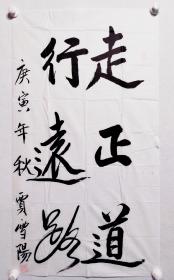 走正道
行遠路
庚寅年秋 賈雪陽